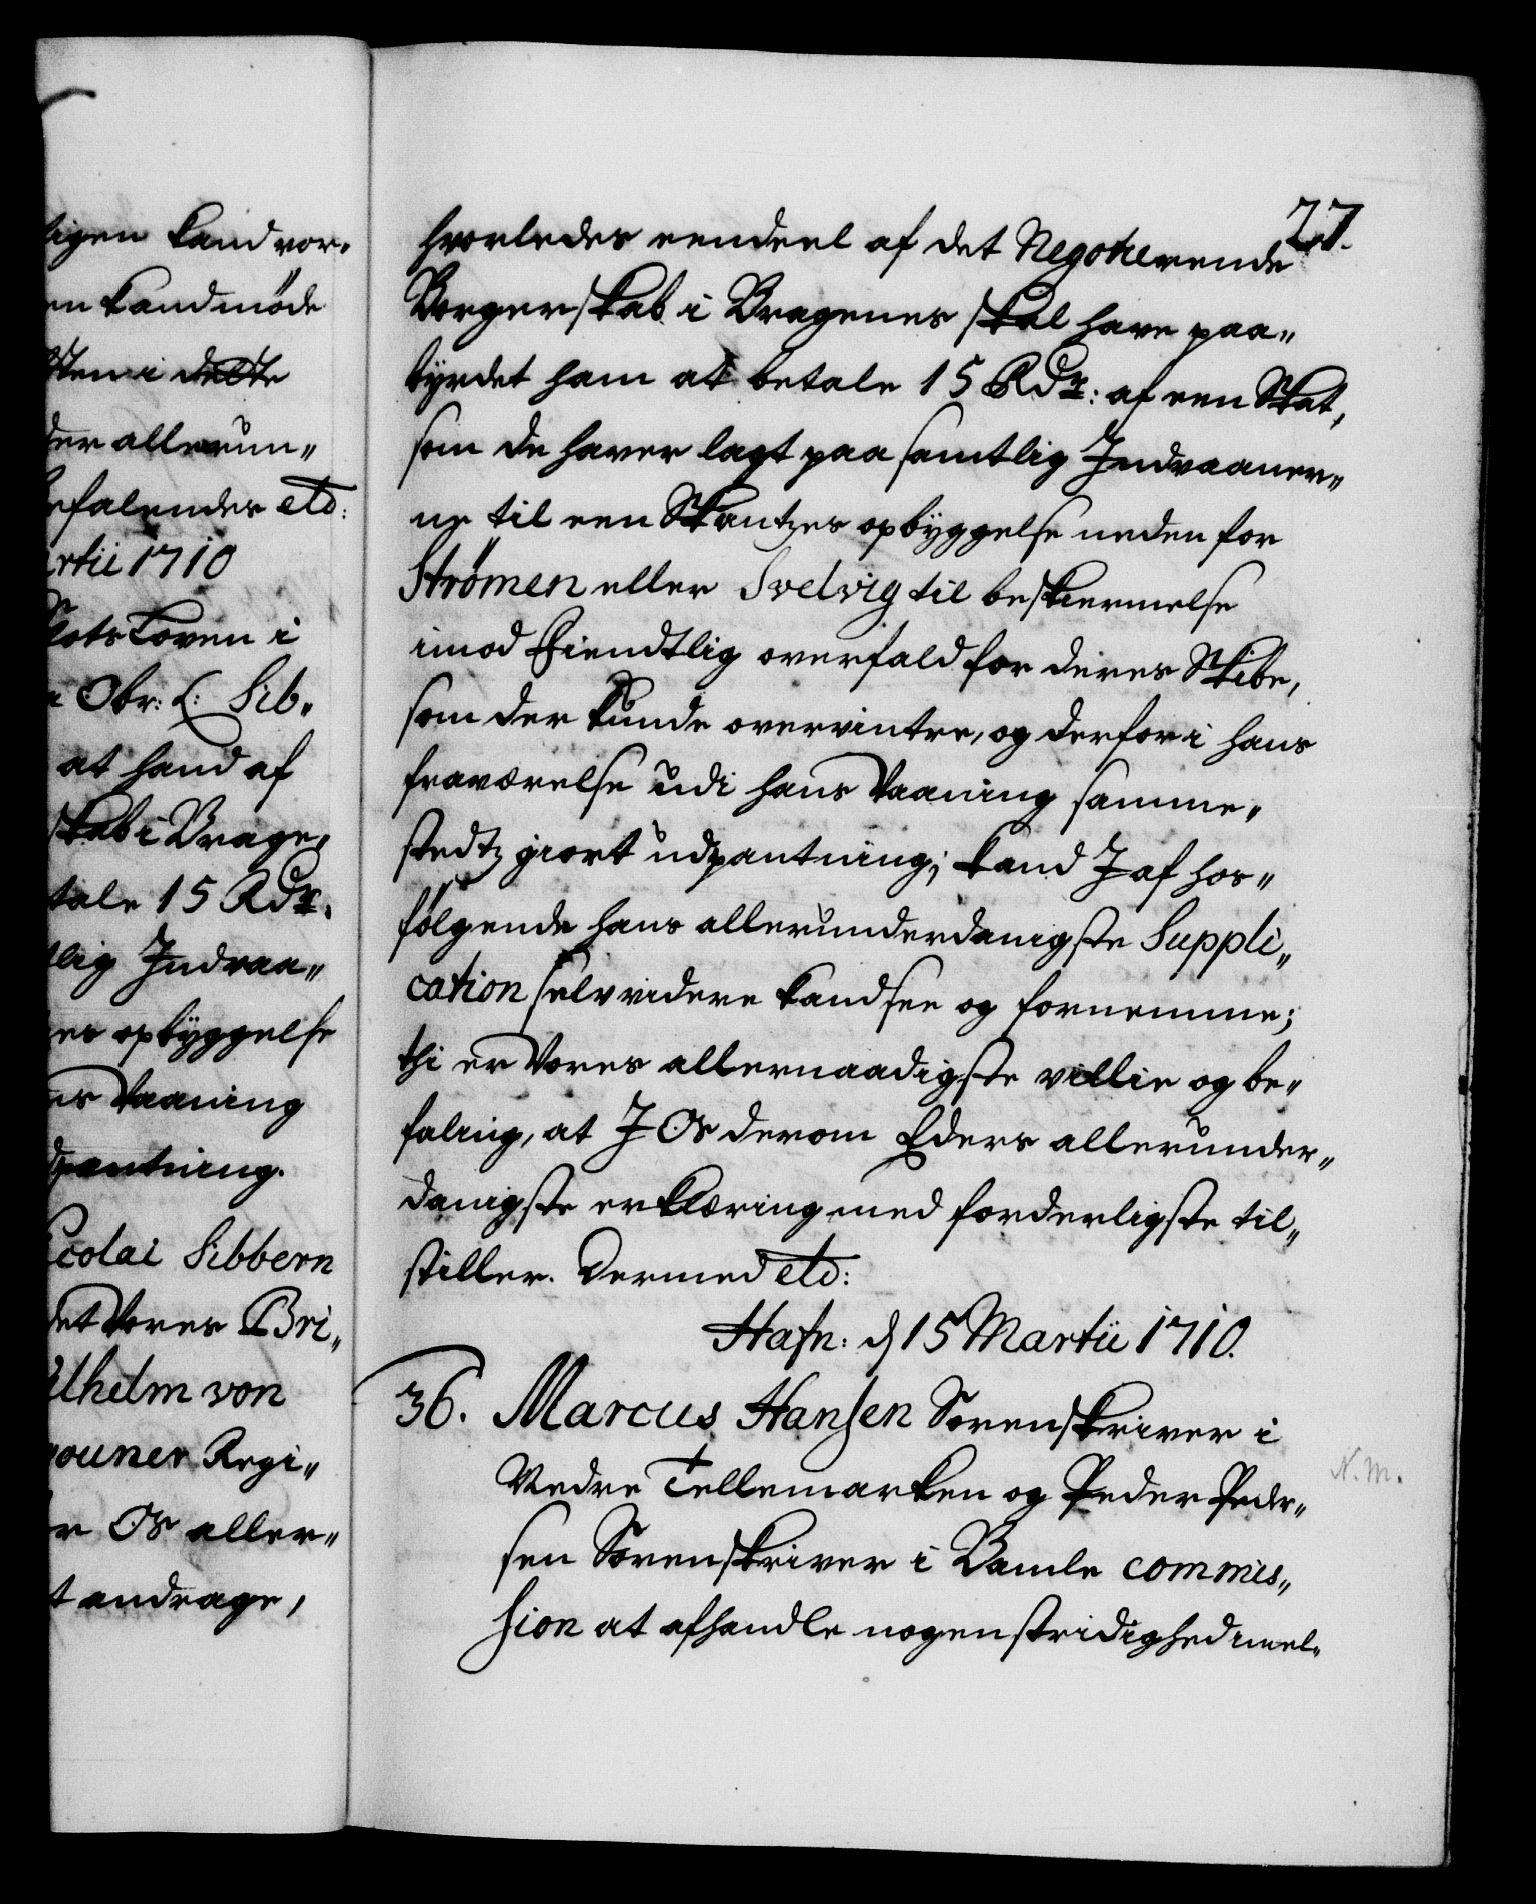 ligen Land vor-
en Landmøde
sten i dette
der allerun-
befalendes etc:
artii 1710
Slots Loven i
Obr: L: Sib-
at hand af
skab i Brage-
tale 15 Rdr.
tlig Indvaa-
es opbyggelse
es Vaaning
dpantning.
icolai Sibbern
det Vores Bri-
ilhelm von
gouner Regi-
or Os aller-
t andrage,
27.
hvorledes eendeel af det Negotierende
Borgerskab i Bragenes skal have paa-
byrdet ham at betale 15 Rdr: af een Skat,
som de haver lagt paa samtlig Indvaaner-
ne til een Skantzes opbyggelse neden for
Strömen eller Svelvig til beskiermelse
imod Fiendtlig overfald for deres Skibe,
som der kunde overvintre, og derfor i hans
fraværelse udi hans Vaaning samme-
stedtz giort udpantning; kand I af hos-
følgende hans allerunderdanigste Suppli-
cation selv videre kand see og fornemme;
thi er Vores allernaadigste villie og be-
faling, at I Os derom Eders allerunder-
danigste erklæring med forderligste til-
stiller. Dermed etc:
Hafn: d 15 Martii 1710.
36. Marcus Hansen Sorenskriver i
Nedre Tellemarken og Peder Peder-
sen Sorenskriver i Bamle commis-
sion at afhandle nogen stridighed imel-
N. M.